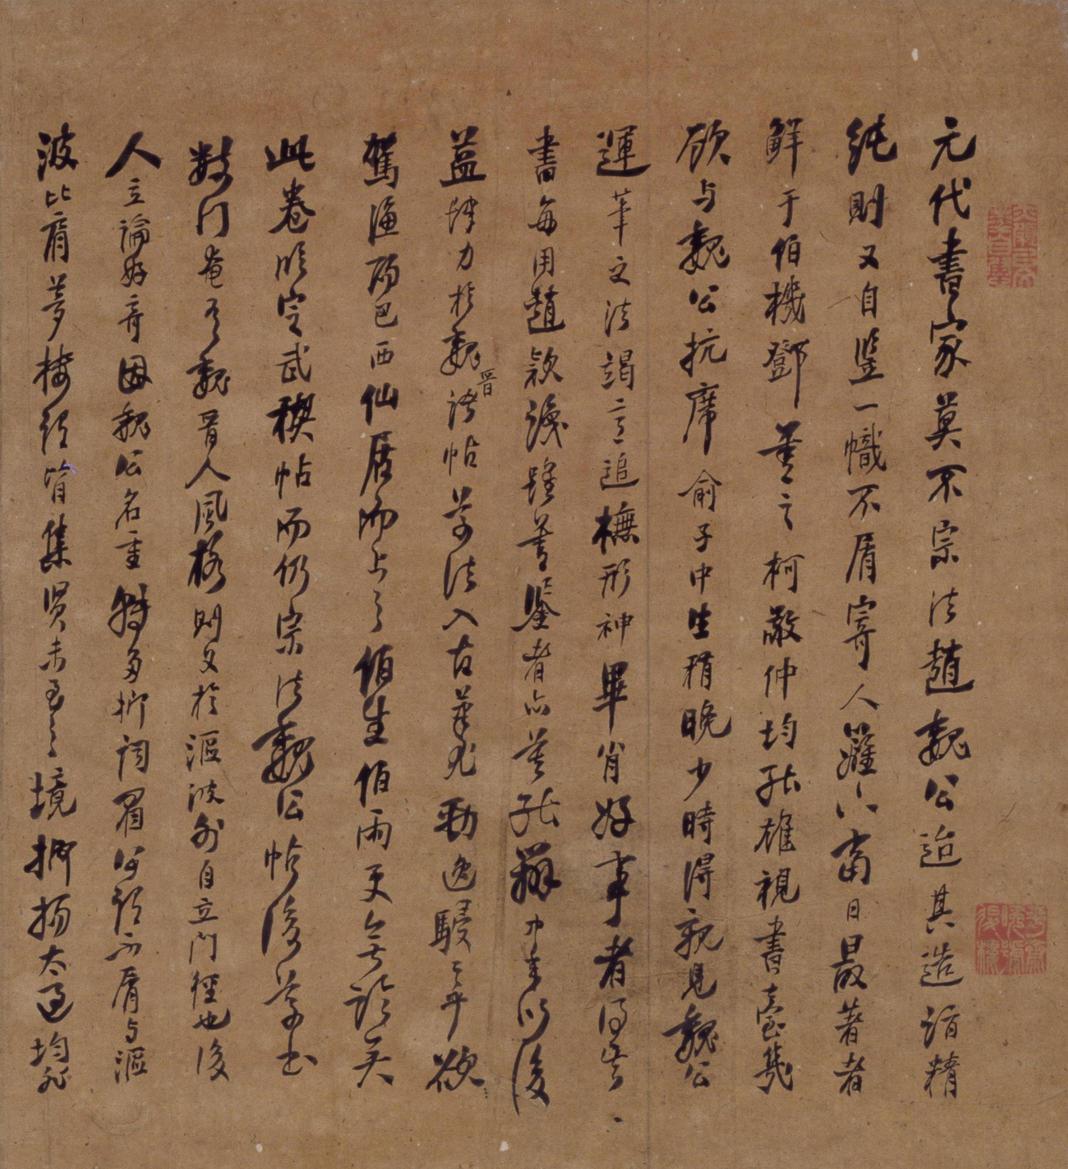 元代書家莫不宗法趙魏公迨其造詣精
純則又自竪一幟不屑寄人籬下當日最著者
鮮于伯機鄧善之柯敬仲均能雄視書壇幾
欲与魏公抗席俞子中生稍晚少時得親見魏公
運筆之法竭意追橅形神畢肖好事者得其
書每用趙款識雖善鑒者亦莫能辨中年以後
益肆力於魏晉諸帖草法入古筆尤勁逸駸駸乎欲
駕漁而巴西仙居而上之伯生伯雨更無論矣
此卷臨定武禊帖而仍宗法魏公帖後草書
數行奄有魏晉人風格則又於漚波外自立門徑也後
人立論好奇因魏公名重特多抑詞眉公謂不屑与漚
波比肩夢樓謂皆集賢未至之境抑揚太過均非